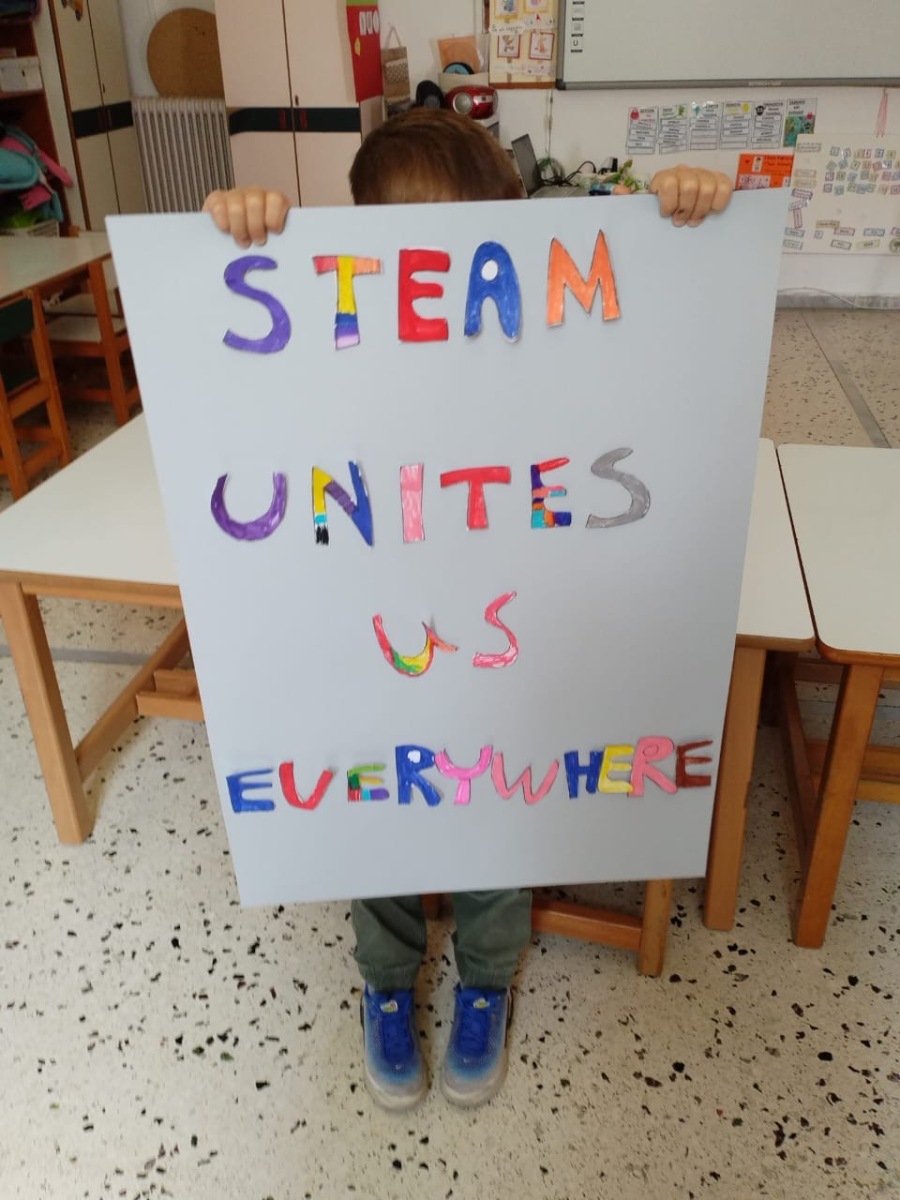 STEAM
UNITES
US
EVERYWHERE